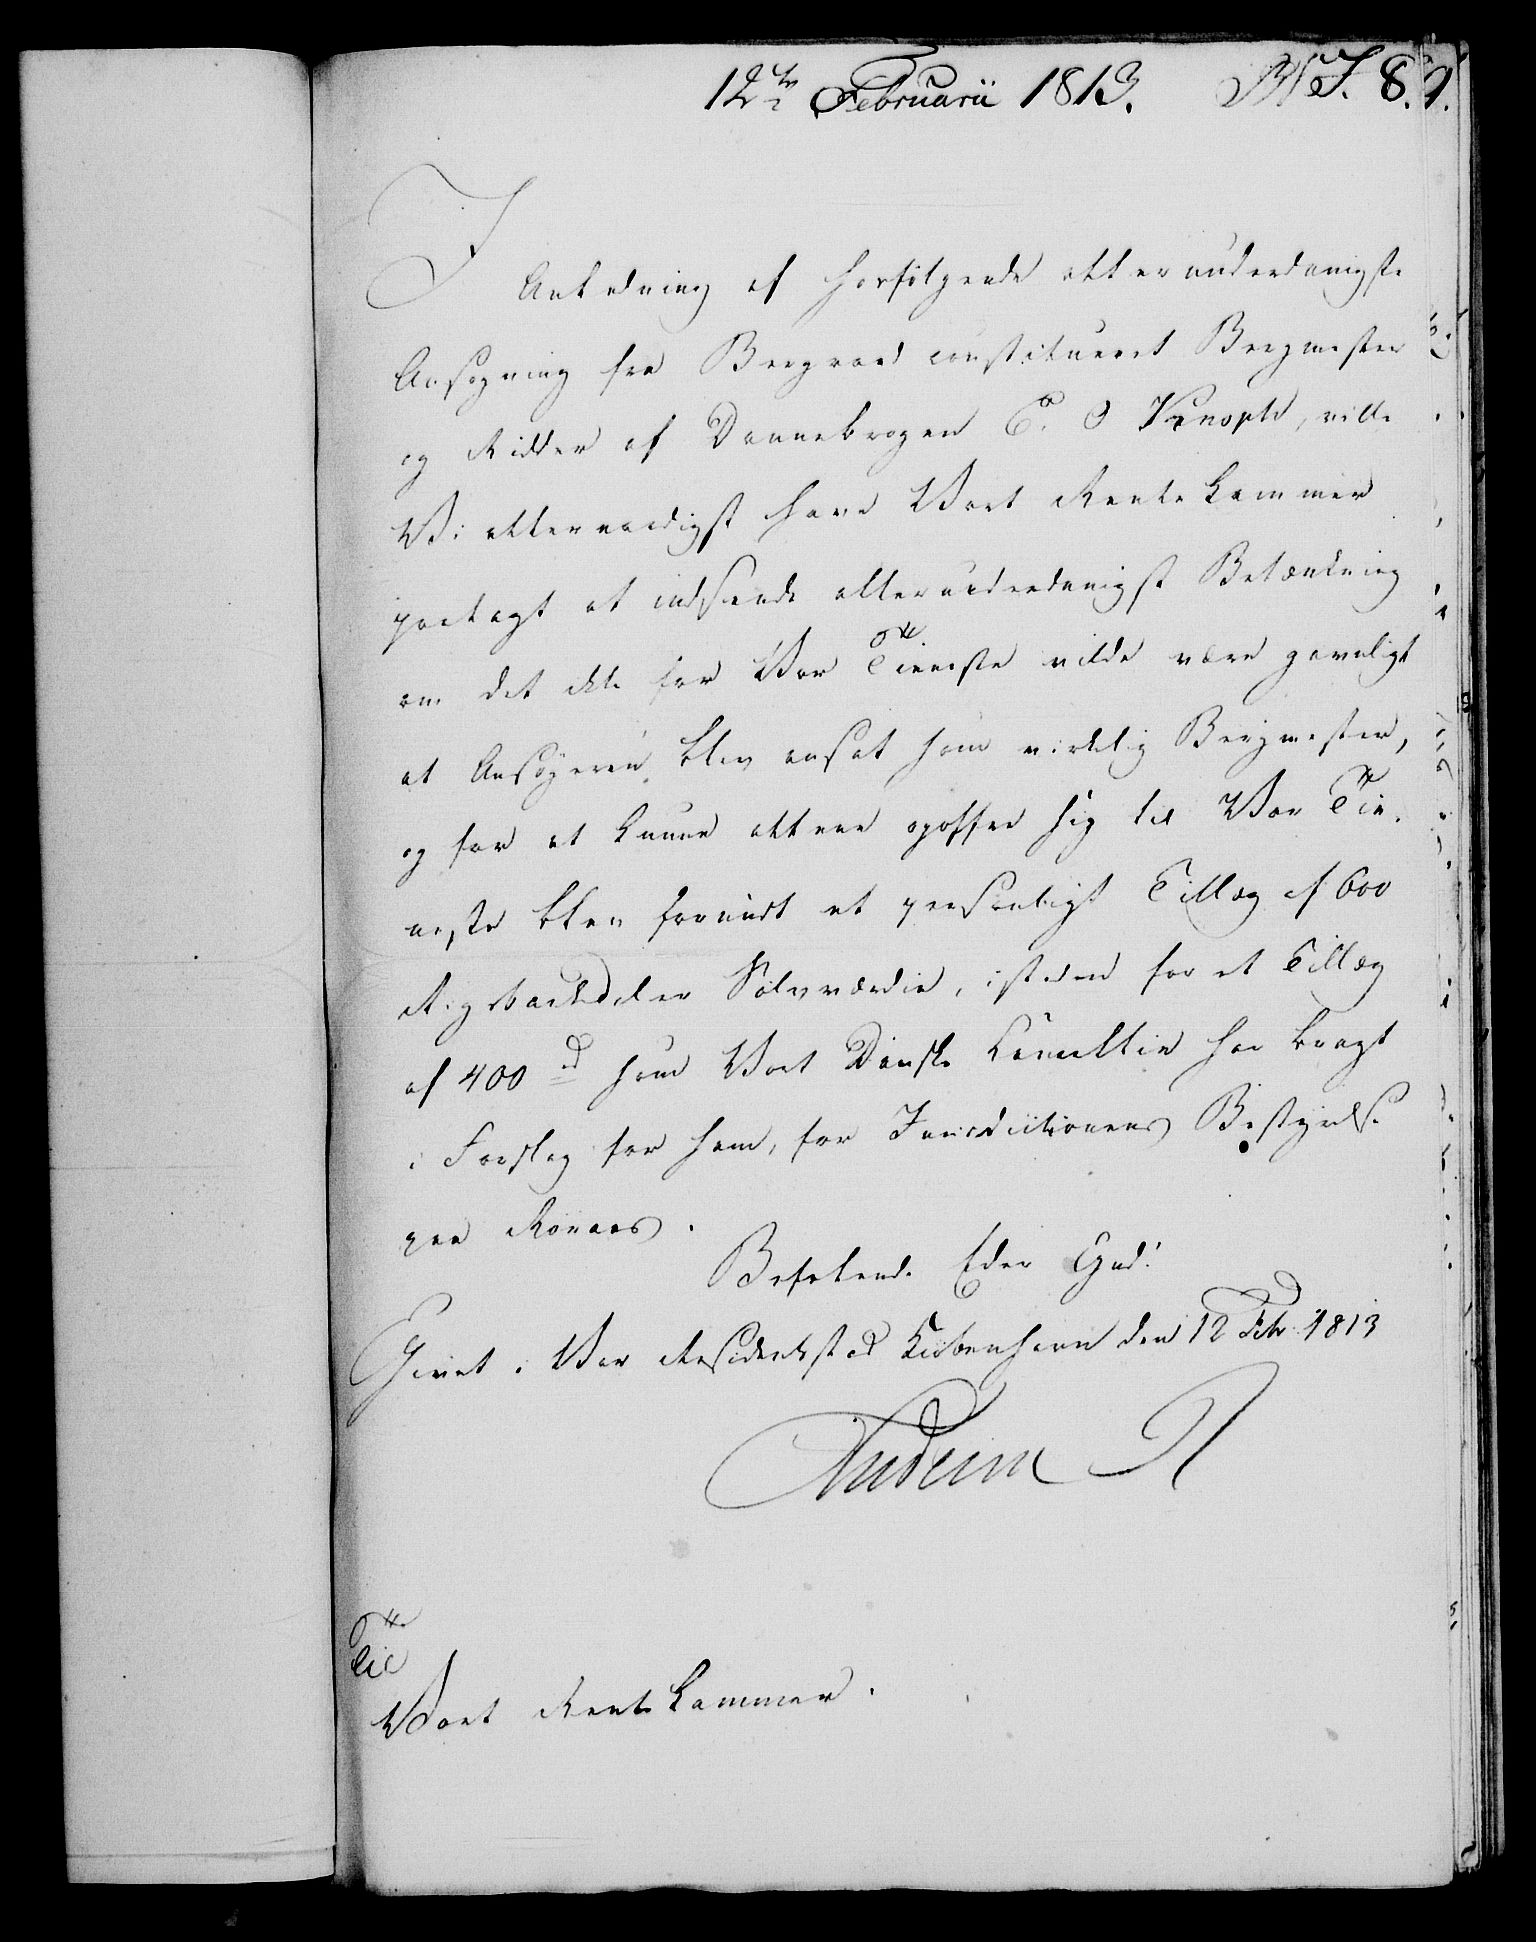 12te Februarii 1813.
I Anledning af hosfölgende allerunderdanigste
Ansøgning fra Bergraad constitueret Bergmester
og Ridder af Dannebrogen C. O Knoph, ville
Vi allernaadigst have Vort Rentekammer
paalagt at indsende allerunderdanigst Betænkning
om det ikke for Vor Tieneste vilde være gavnligt
at Ansøgeren blev ansat som virkelig Bergmester,
og for at kunne alene opoffre sig til Vor Tie-
neste blev forundt et personligt Tillæg af 600
Rigsbankdaler Sølvværdie, isteden for et Tillæg
af 400 rd som Vort Danske Cancellie har bragt
i Forslag for ham, for Jurisdictionens Bestyrelse
paa Röraas.
Befalende Eder Gud!
Givet i Vor Residentsstad Kiöbenhavn den 12 Febr 1813
Friderich R
Til
Vort Rentekammer.